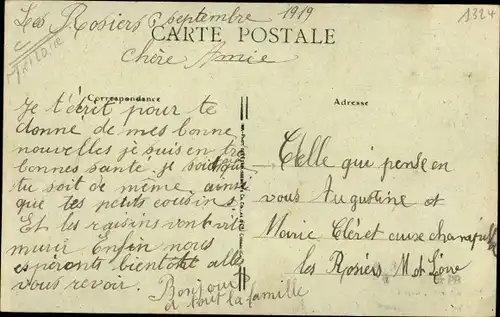 Les Rosiers 6 septembre 1919
1324
CARTE POSTALE
chère Amie
Correspondance
Adresse
Je t'écrit pour te
donné de mes bonne
nouvelles je suis en trè
bonnes santé. je soid que
tu soit de même ainsi
que tes petits cousins
Et les raisins vont vite
murir Enfin nous
espérons bientôt allé
vous revoir. Bonjour
a tout la famille
Celle qui pense en
vous Augustine et
Marie Cléret aux
les Rosiers M et Loire